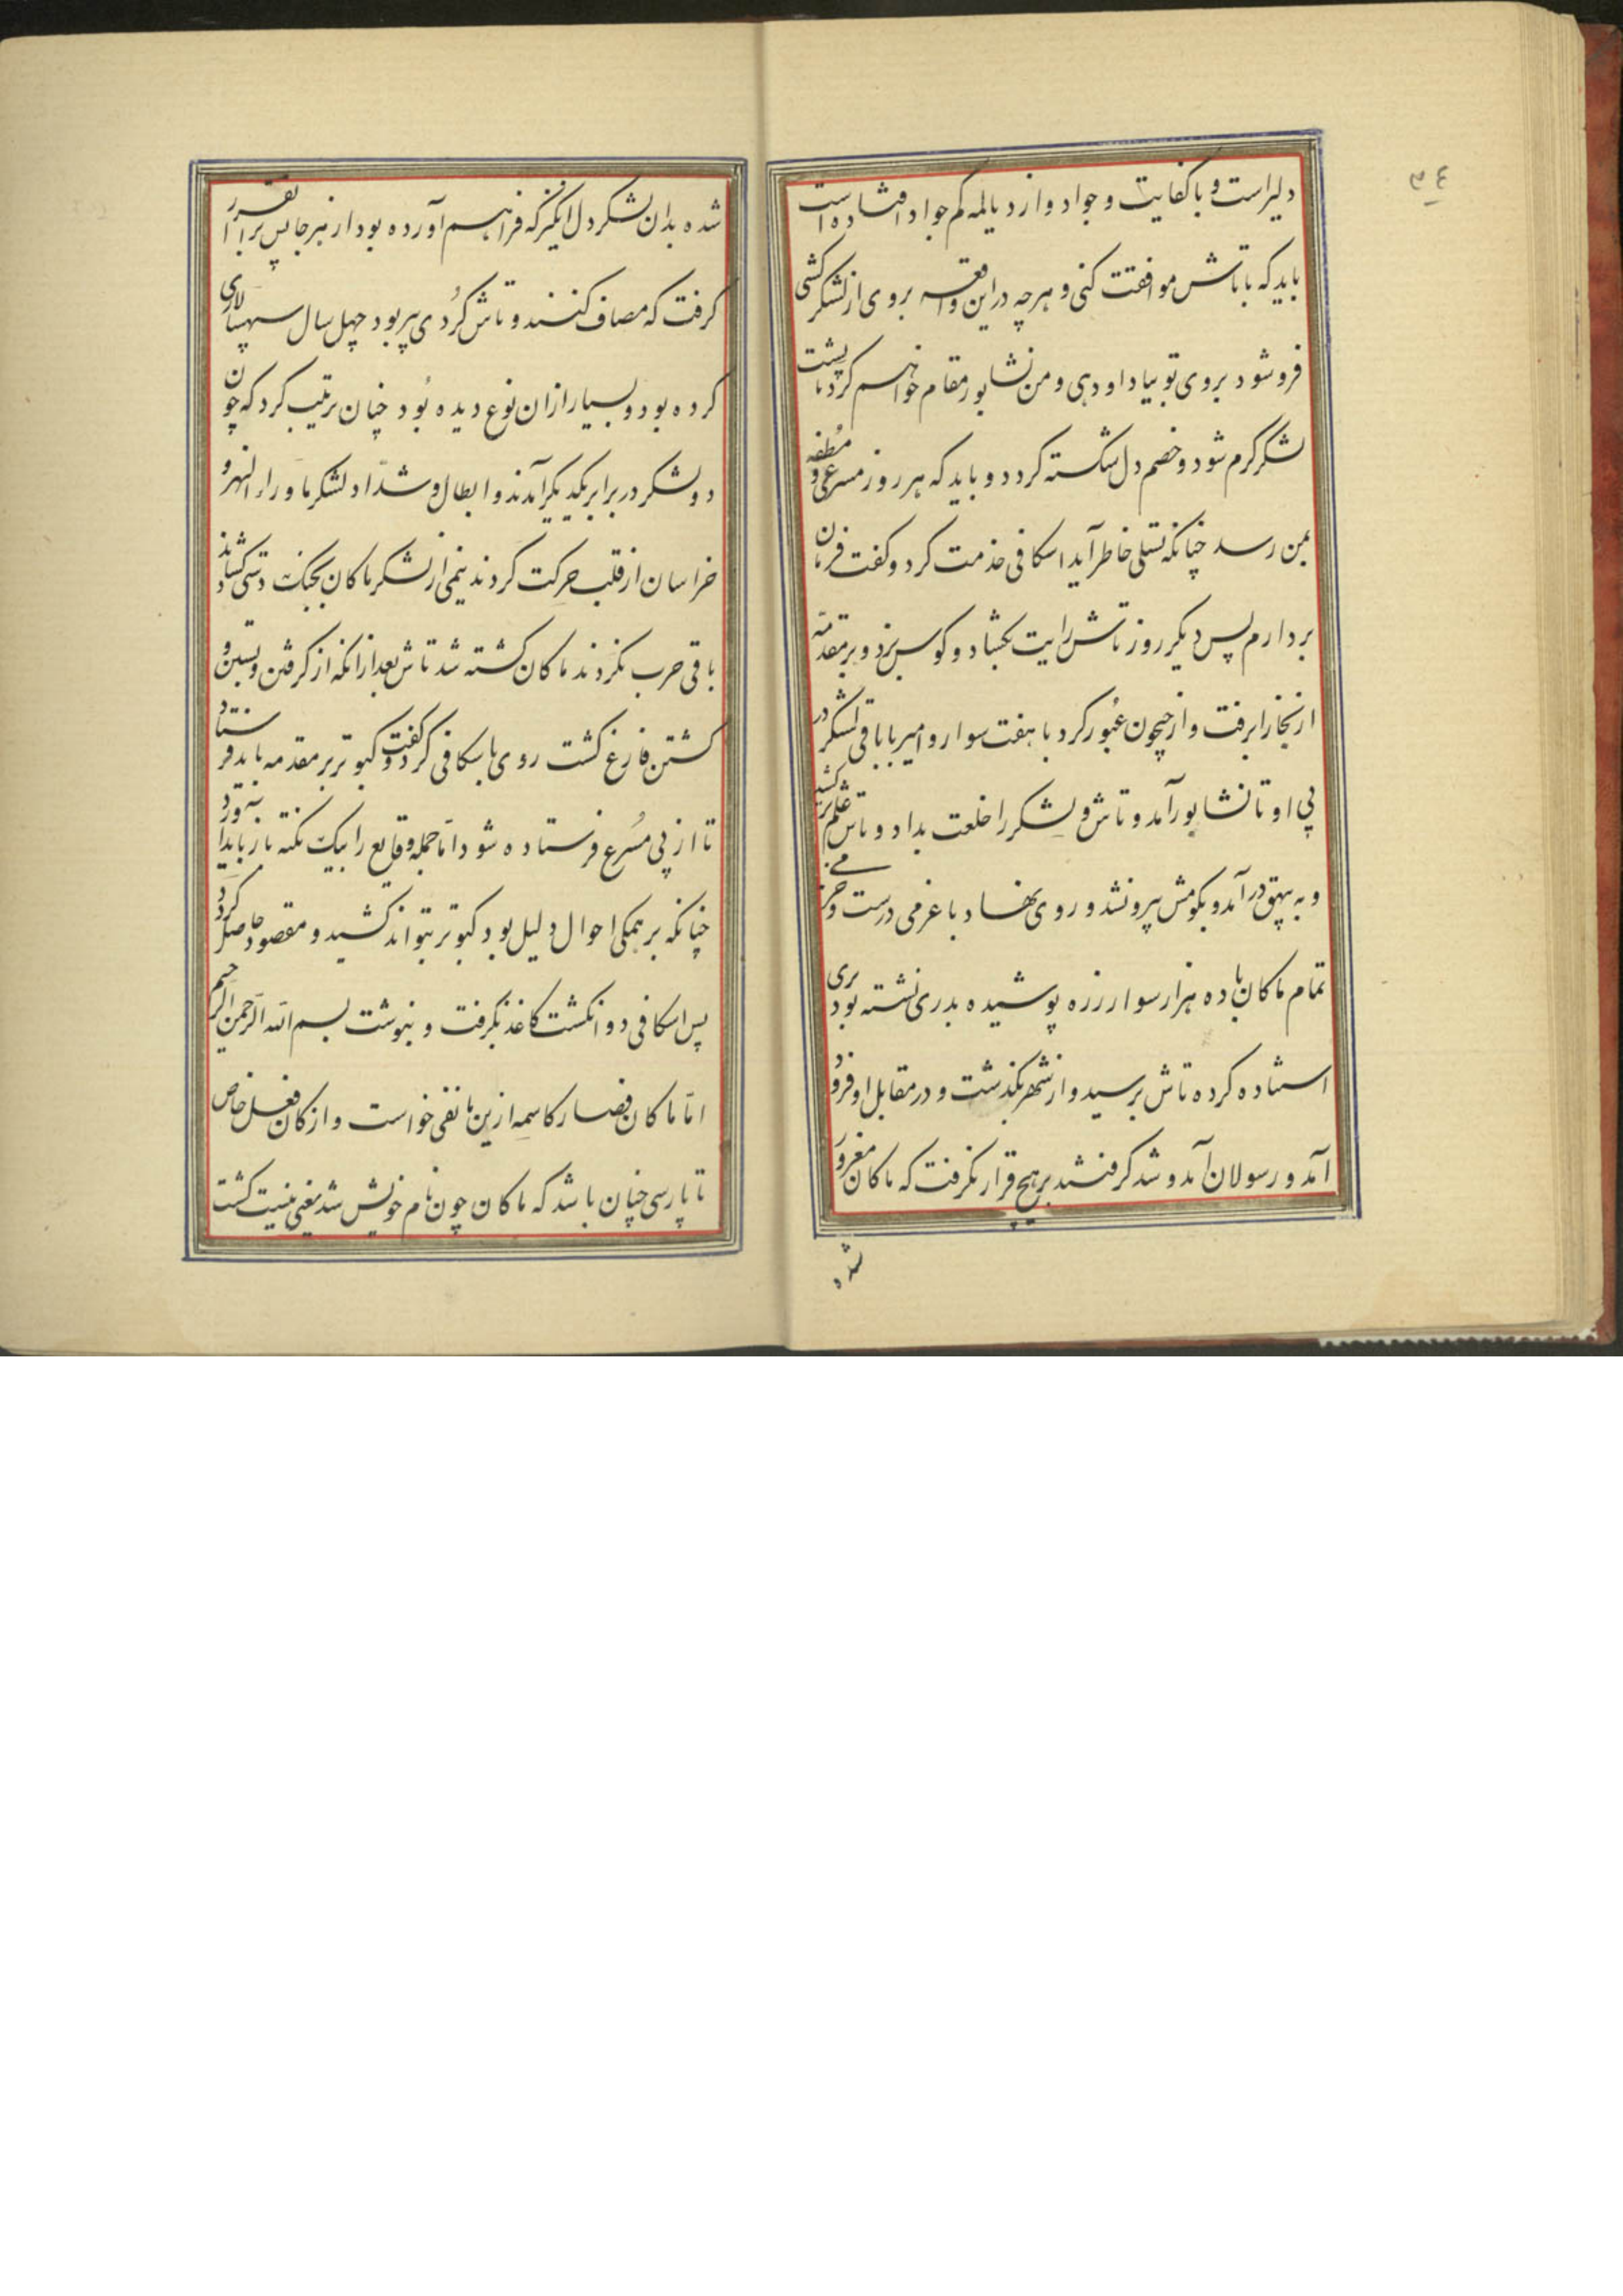 ٣٤
دلیراست و با کفایت و جواد و از دیالمه کم جواد افتاده است
باید که با تاش موافقت کنی و هرچه در این واقعه بر وی از لشکر کشی
فرو شود بر وی تو بیاد او دهی و من نشابور مقام خواهم کرد تا پشت
لشکر گرم شود و خصم دل شکسته گردد و باید که هر روز مسرعی و ملطفه
بمن رسد چنانکه تسلی خاطر آید اسکافی خدمت کرد و گفت فرمان
بردارم پس دیگر روز تاش رایت بگشاد و کوس بزد و بر مقدمه
از بخارا برفت و از جیحون عبور کرد با هفت سوار و امیر با باقی لشکر در
پی او تا نشابور آمد و تاش و لشکر را خلعت بداد و تاش علم بر کشید
و به بیهق در آمد و بکومش بیرون شد و روی نهاد با عزمی درست و حزمی
تمام ماکان با ده هزار سوار زره پوشیده بدر ری نشسته بود بری
استاده کرده تاش برسید و از شهر بگذشت و در مقابل او فرود
آمد و رسولان آمد و شد گرفتند بر هیچ قرار نگرفت که ماکان مغرور
شد
شده بدان لشکر دل انگیز که فراهم آورده بود از هر جا پس برا تقرر
گرفت که مصاف کنند و تاش گردی پیر بود چهل سال سپهسالاری
کرده بود و بسیار ازان نوع دیده بود چنان ترتیب کرد که چون
دو لشکر در برابر یکدیگر آمدند و ابطال و شداد لشکر ماوراء النهر و
خراسان از قلب حرکت کردند نیمی از لشکر ماکان بجنگ دستی گشادند
باقی حرب نکردند ماکان کشته شد تاش بعد ازانکه از گرفتن و بستن و
کشتن فارغ گشت روی باسکافی کرد و گفت کبوتر بر مقدمه باید فرستاد
تا از پی مسرع فرستاده شود اما جمله وقایع را بیک نکته باز باید آورد
چنانکه بر همگی احوال دلیل بود کبوتر بتواند کشید و مقصود حاصل گردد
پس اسکافی دو انگشت کاغذ بگرفت و بنوشت بسم الله الرحمن الرحیم
اما ماکان فصار کاسمه ازین ما نفی خواست و از کان فعل خاص
تا پارسی چنان باشد که ماکان چون نام خویش شد یعنی نیست گشت